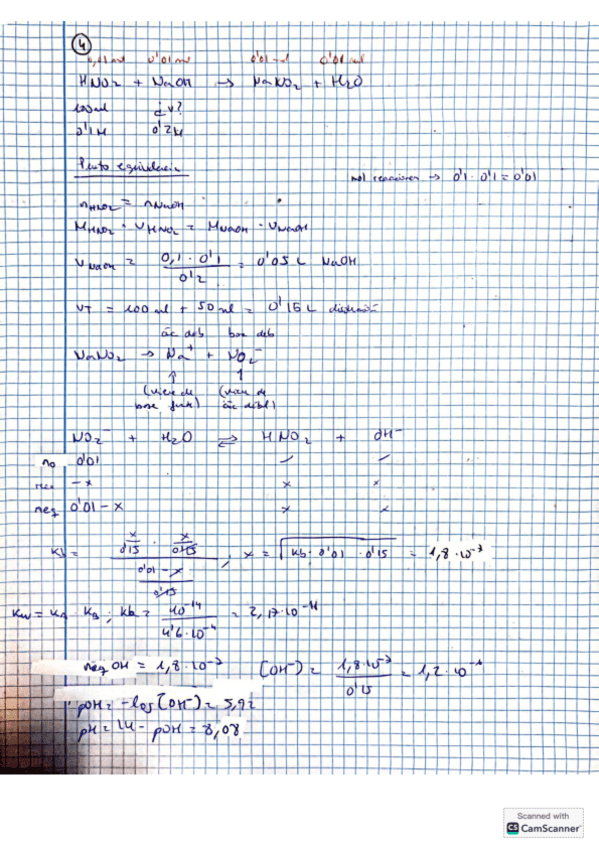 4
0,01 mol 0'01 mol 0'01 mol 0'01 mol
HNO2 + NaOH → NaNO2 + H2O
100 ml ¿V?
0'1 M 0'2 M
Punto equivalencia
mol reaccionen → 0'1 · 0'1 = 0'01
nHNO2 = nNaOH
MHNO2 · VHNO2 = MNaOH · VNaOH
VNaOH = 0,1 · 0'1 / 0'2 = 0'05 L NaOH
VT = 100 ml + 50 ml = 0'15 L disolución
ác deb base deb
NaNO2 → Na+ + NO2-
↑ ↑
(viene de (viene de
base fuerte) ác débil)
NO2- + H2O ⇌ HNO2 + OH-
no 0'01 - -
reac -x x x
neq 0'01 - x x x
Kb = x/0'15 · x/0'15 / 0'01 - x/0'15 ; x = √Kb · 0'01 · 0'15 = 1,8 · 10-7
Kw = Ka · Kb ; Kb = 10-14 / 4'6 · 10-4 = 2,17 · 10-11
neq OH = 1,8 · 10-7 [OH-] = 1,8 · 10-7 / 0'15 = 1,2 · 10-6
pOH = -log [OH-] = 5,92
pH = 14 - pOH = 8,08
Scanned with
CS CamScanner